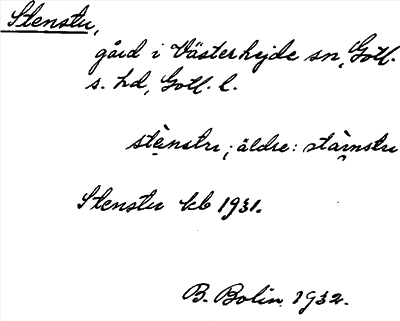 Stenstu,
gård i Västerhejde sn, Gotl.
s. hd, Gotl. l.
stànstu; äldre: stàinstu
Stenstu kb 1931.
B. Bolin 1932.